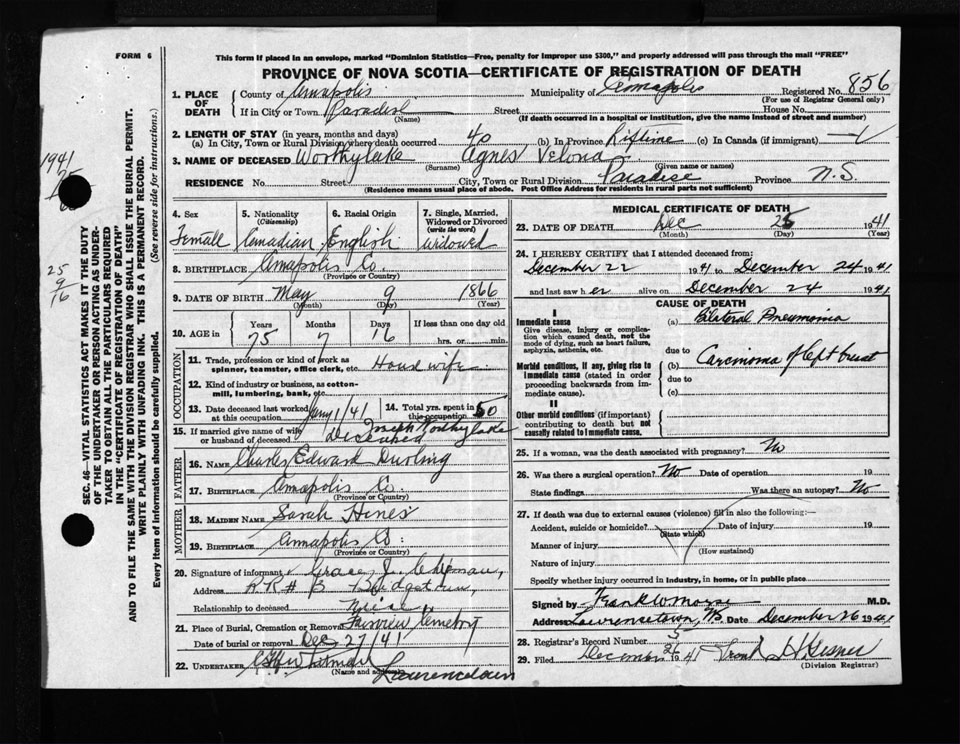 FORM 6
This form if placed in an envelope, marked "Dominion Statistics—Free, penalty for improper use $300," and properly addressed will pass through the mail "FREE"
PROVINCE OF NOVA SCOTIA—CERTIFICATE OF REGISTRATION OF DEATH
1. PLACE OF DEATH County of Annapolis Municipality of Annapolis Registered No. 856
(For use of Registrar General only)
If in City or Town Paradise Street House No.
(Name) (If death occurred in a hospital or institution, give the name instead of street and number)
2. LENGTH OF STAY (in years, months and days)
(a) In City, Town or Rural Division where death occurred 40 (b) In Province Lifetime (c) In Canada (if immigrant)
3. NAME OF DECEASED Worthylake Agnes Velona
(Surname) (Given name or names)
RESIDENCE No. Street City, Town or Rural Division Paradise Province N.S.
(Residence means usual place of abode. Post Office Address for residents in rural parts not sufficient)
4. Sex Female
5. Nationality (Citizenship) Canadian
6. Racial Origin English
7. Single, Married, Widowed or Divorced (write the word) widowed
8. BIRTHPLACE Annapolis Co.
(Province or Country)
9. DATE OF BIRTH May 9 1866
(Month) (Day) (Year)
10. AGE in Years Months Days If less than one day old
75 7 16 hrs. or min.
OCCUPATION
11. Trade, profession or kind of work as spinner, teamster, office clerk, etc. House wife
12. Kind of industry or business, as cotton-mill, lumbering, bank, etc.
13. Date deceased last worked at this occupation Jany 1/41
14. Total yrs. spent in this occupation 50
15. If married give name of wife or husband of deceased Joseph Worthylake
deceased
FATHER
16. NAME Charles Edward Durling
17. BIRTHPLACE Annapolis Co.
(Province or Country)
MOTHER
18. MAIDEN NAME Sarah Hines
19. BIRTHPLACE Annapolis Co.
(Province or Country)
20. Signature of informant Grace J.
Address R.R.# 3 Bridgetown,
Relationship to deceased Niece
21. Place of Burial, Cremation or Removal Fairview Cemetery
Date of burial or removal Dec 27/41
22. UNDERTAKER
(Name and address) Lawrencetown
MEDICAL CERTIFICATE OF DEATH
23. DATE OF DEATH Dec 25 1941
(Month) (Day) (Year)
24. I HEREBY CERTIFY that I attended deceased from:
December 22 1941 to December 24 1941
and last saw her alive on December 24 1941
CAUSE OF DEATH
I
Immediate cause
Give disease, injury or complication which caused death, not the mode of dying, such as heart failure, asphyxia, asthenia, etc.
(a) Bilateral Pneumonia
due to
Morbid conditions, if any, giving rise to immediate cause (stated in order proceeding backwards from immediate cause).
(b) Carcinoma of left breast
due to
(c)
II
Other morbid conditions (if important) contributing to death but not causally related to immediate cause.
25. If a woman, was the death associated with pregnancy? No
26. Was there a surgical operation? No Date of operation 19
State findings Was there an autopsy? No
27. If death was due to external causes (violence) fill in also the following:—
Accident, suicide or homicide? Date of injury 19
(State which)
Manner of injury
(How sustained)
Nature of injury
Specify whether injury occurred in industry, in home, or in public place
Signed by Frank W Morse M.D.
Address Lawrencetown, NS Date December 26 1941
28. Registrar's Record Number 5
29. Filed December 26 1941 Frank H Gesner
(Division Registrar)
SEC. 46—VITAL STATISTICS ACT MAKES IT THE DUTY
OF THE UNDERTAKER OR PERSON ACTING AS UNDERTAKER TO OBTAIN ALL THE PARTICULARS REQUIRED
IN THE "CERTIFICATE OF REGISTRATION OF DEATH"
AND TO FILE THE SAME WITH THE DIVISION REGISTRAR WHO SHALL ISSUE THE BURIAL PERMIT.
WRITE PLAINLY WITH UNFADING INK. THIS IS A PERMANENT RECORD.
Every item of Information should be carefully supplied. (See reverse side for instructions.)
1941
75
25
9
16